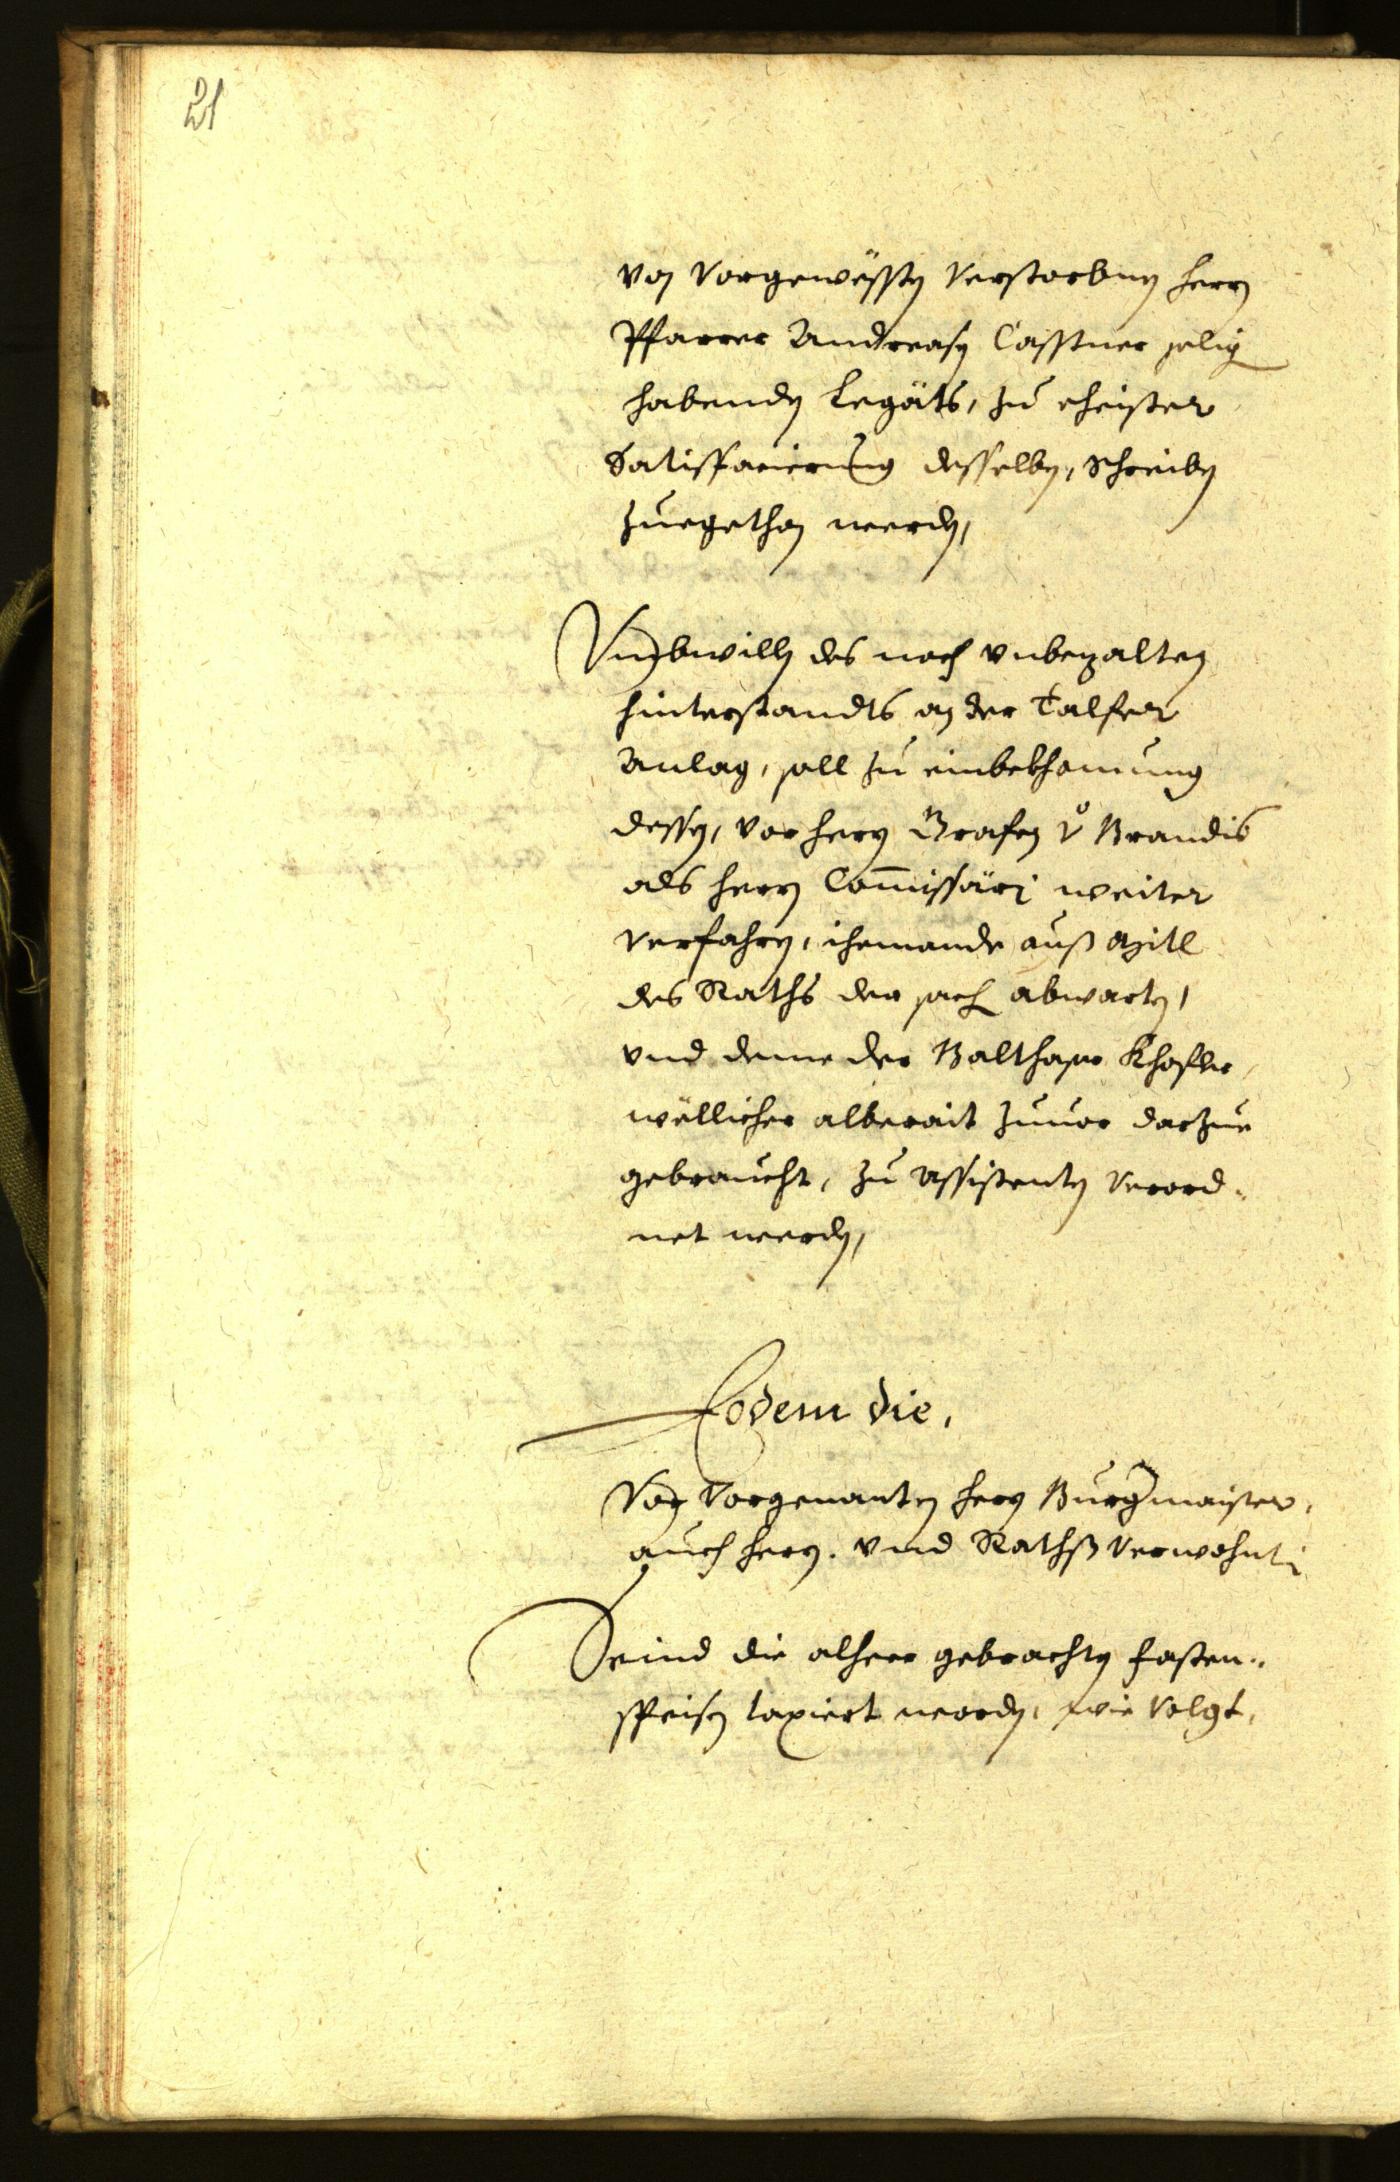 21
von vorgewëssten verstorbnen herrn
Pfarrer Andreasn Casstner selig
habenden Legäts, zu eheister
Satisfacierung desselben, schreiben
zuegethan werden,
Umbwillen des noch unbezalten
hinterstandts an der Talfer
Anlag, soll zu einbekhomung
dessen, vor herrn Grafen v. Brandis
als herrn Comissärj weiter
verfahrn, jemande auß mitl
des Raths der sach abwarten,
vnd deme der Balthasar Khofler
wöllicher alberait zuuor darzue
gebraucht, zu Assistenten verord-
net werden,
Eodem die,
Von vorgenanten herrn Burgmaister,
auch herrn. vnd Rathßverwohnt
Seind die alheer gebrachten fasten-
speisen taxiert worden, wie volgt,